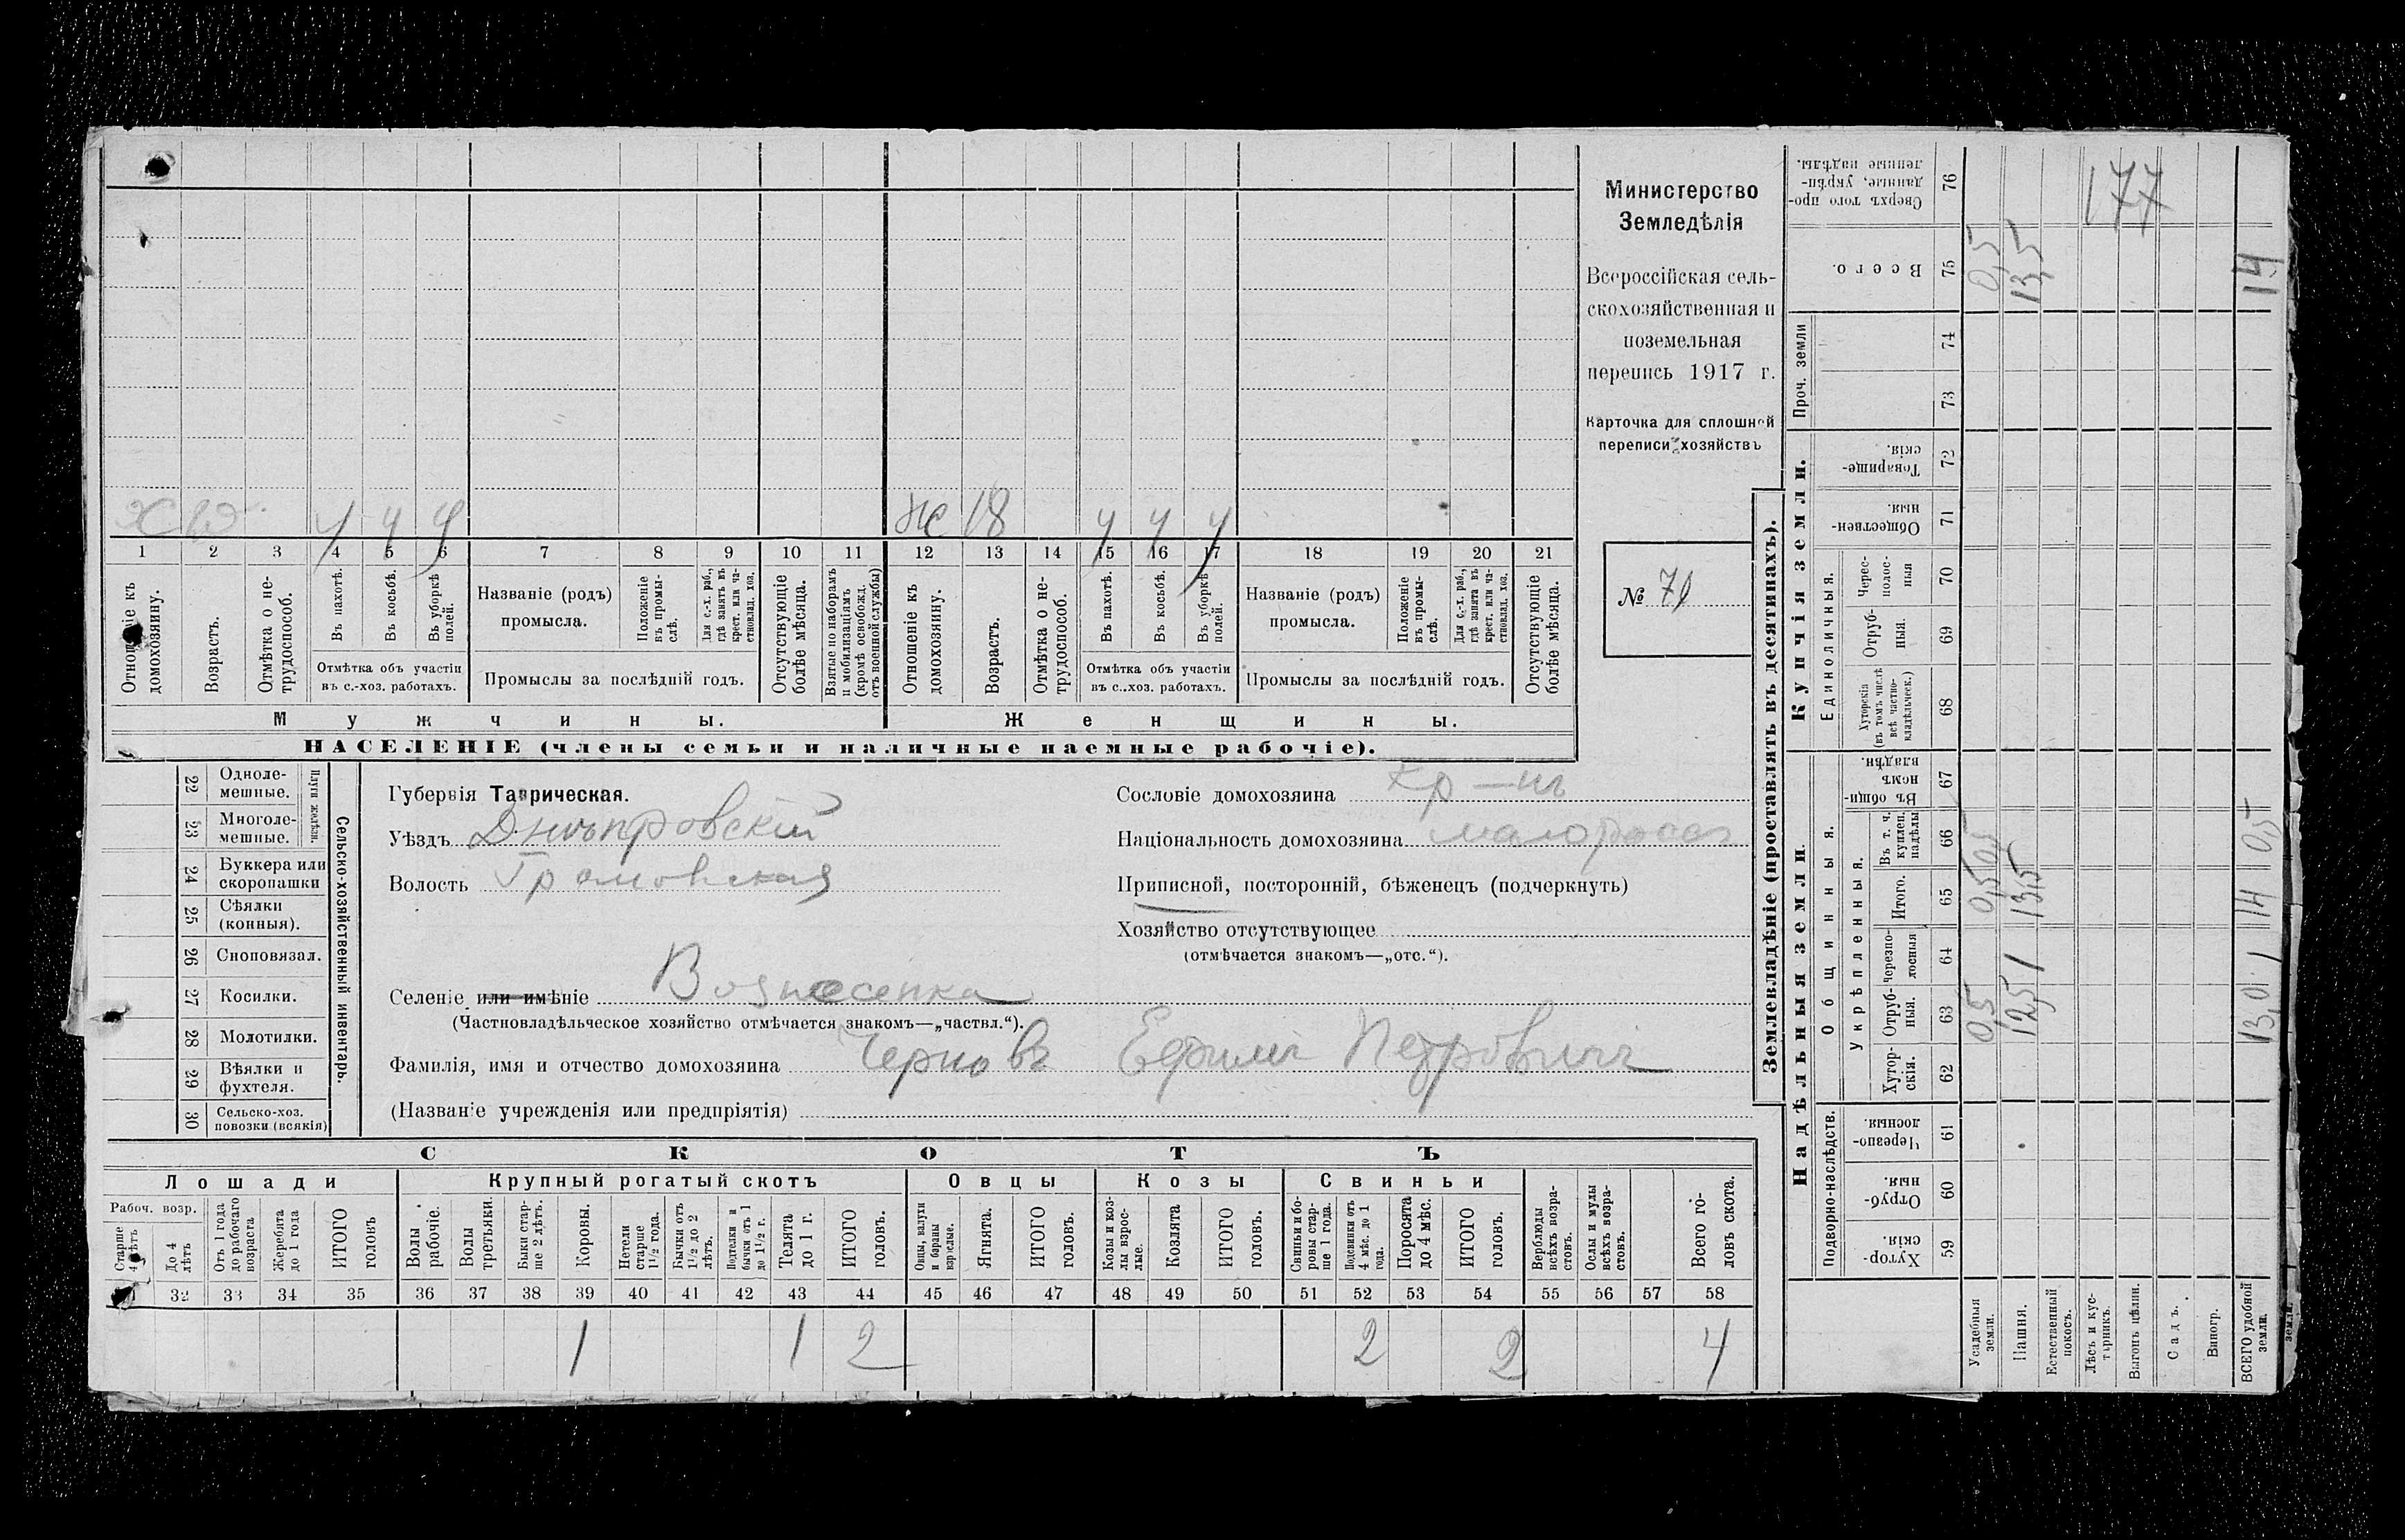 Министерство
Земледѣлія
Всероссійская сель-
скохозяйственная и
поземельная
перепись 1917 г.
Карточка для сплошной
переписи хозяйствъ
№ 71
х у у у ж 18 у у у
1 2 3 4 5 6 7 8 9 10 11 12 13 14 15 16 17 18 19 20 21
Отношеніе къ домохозяину.
Возрастъ.
Отмѣтка о не-трудоспособ.
Въ пахотѣ.
Въ косьбѣ.
Въ уборкѣ полей.
Отмѣтка объ участіи
въ с.-хоз. работахъ.
Названіе (родъ)
промысла.
Положеніе въ промы-слѣ.
Для с.-х. раб., гдѣ занятъ въ крест. или ча-стновлад. хоз.
Промыслы за послѣдній годъ.
Отсутствующіе болѣе мѣсяца.
Взятые по наборамъ и мобилизаціямъ (кромѣ освобожд. отъ военной службы)
Отношеніе къ домохозяину.
Возрастъ.
Отмѣтка о не-трудоспособ.
Въ пахотѣ.
Въ косьбѣ.
Въ уборкѣ полей.
Отмѣтка объ участіи
въ с.-хоз. работахъ.
Названіе (родъ)
промысла.
Положеніе въ промы-слѣ.
Для с.-х. раб., гдѣ занята въ крест. или ча-стновлад. хоз.
Промыслы за послѣдній годъ.
Отсутствующіе болѣе мѣсяца.
Мужчины. Женщины.
НАСЕЛЕНІЕ (члены семьи и наличные наемные рабочіе).
Сельско-хозяйственный инвентарь.
Плуги желѣзн.
22 Одноле-мешные.
23 Многоле-мешные.
24 Буккера или скоропашки
25 Сѣялки (конныя).
26 Сноповязал.
27 Косилки.
28 Молотилки.
29 Вѣялки и фухтеля.
30 Сельско-хоз. повозки (всякія)
Губернія Таврическая.
Уѣздъ Днѣпровскій
Волость Громовская
Селеніе или имѣніе Вознесенка
(Частновладѣльческое хозяйство отмѣчается знакомъ—„частвл.“).
Фамилія, имя и отчество домохозяина Черновъ Ефимъ Петровичъ
(Названіе учрежденія или предпріятія)
Сословіе домохозяина кр-нъ
Національность домохозяина малороссъ
Приписной, посторонній, бѣженецъ (подчеркнуть)
Хозяйство отсутствующее
(отмѣчается знакомъ—„отс.“).
СКОТЪ
Лошади Крупный рогатый скотъ Овцы Козы Свиньи
Рабоч. возр.
Старше 4 лѣтъ
До 4 лѣтъ
Отъ 1 года до рабочаго возраста
Жеребята до 1 года
ИТОГО головъ
Волы рабочіе.
Волы третьяки.
Быки стар-ше 2 лѣтъ.
Коровы.
Нетели старше 1½ года.
Бычки отъ 1½ до 2 лѣтъ.
Подтелки и бычки отъ 1 до 1½ г.
Телята до 1 г.
ИТОГО головъ.
Овцы, валухи и бараны взрослые.
Ягнята.
ИТОГО головъ.
Козы и коз-лы взрос-лые.
Козлята
ИТОГО головъ.
Свиньи и бо-ровы стар-ше 1 года.
Подсвинки отъ 4 мѣс. до 1 года.
Поросята до 4 мѣс.
ИТОГО головъ.
Верблюды всѣхъ возра-стовъ.
Ослы и мулы всѣхъ возра-стовъ.
Всего го-ловъ скота.
32 33 34 35 36 37 38 39 40 41 42 43 44 45 46 47 48 49 50 51 52 53 54 55 56 57 58
1 1 2 2 2 4
Землевладѣніе (проставлять въ десятинахъ).
Надѣльныя земли Купчія земли. Проч. земли
Подворно-наслѣдств.
Общинныя.
Укрѣпленныя.
Единоличныя.
Хутор-скія. 59
Отруб-ныя. 60
Черезпо-лосныя 61
Хутор-скія. 62
Отруб-ныя. 63
Черезпо-лосныя 64
Итого. 65
Въ т. ч. куплен. надѣлы 66
Въ общи-нномъ владѣн. 67
Хуторскія (въ томъ числѣ всѣ частно-владѣльческ.) 68
Отруб-ныя. 69
Черес-полос-ныя 70
Обществен-ныя. 71
Товарище-скія. 72
73
74
Всего. 75
Сверхъ того про-данные, укрѣп-ленные надѣлы. 76
Усадебныя земли. 0,5 0,5 0,5 0,5
Пашня. 12,5 1 13,5 13,5
Естественный покосъ.
Лѣсъ и кус-тарникъ.
Выгонъ цѣлин.
Садъ.
Виногр.
ВСЕГО удобной земли. 13,0 1 14 0,5 14
177